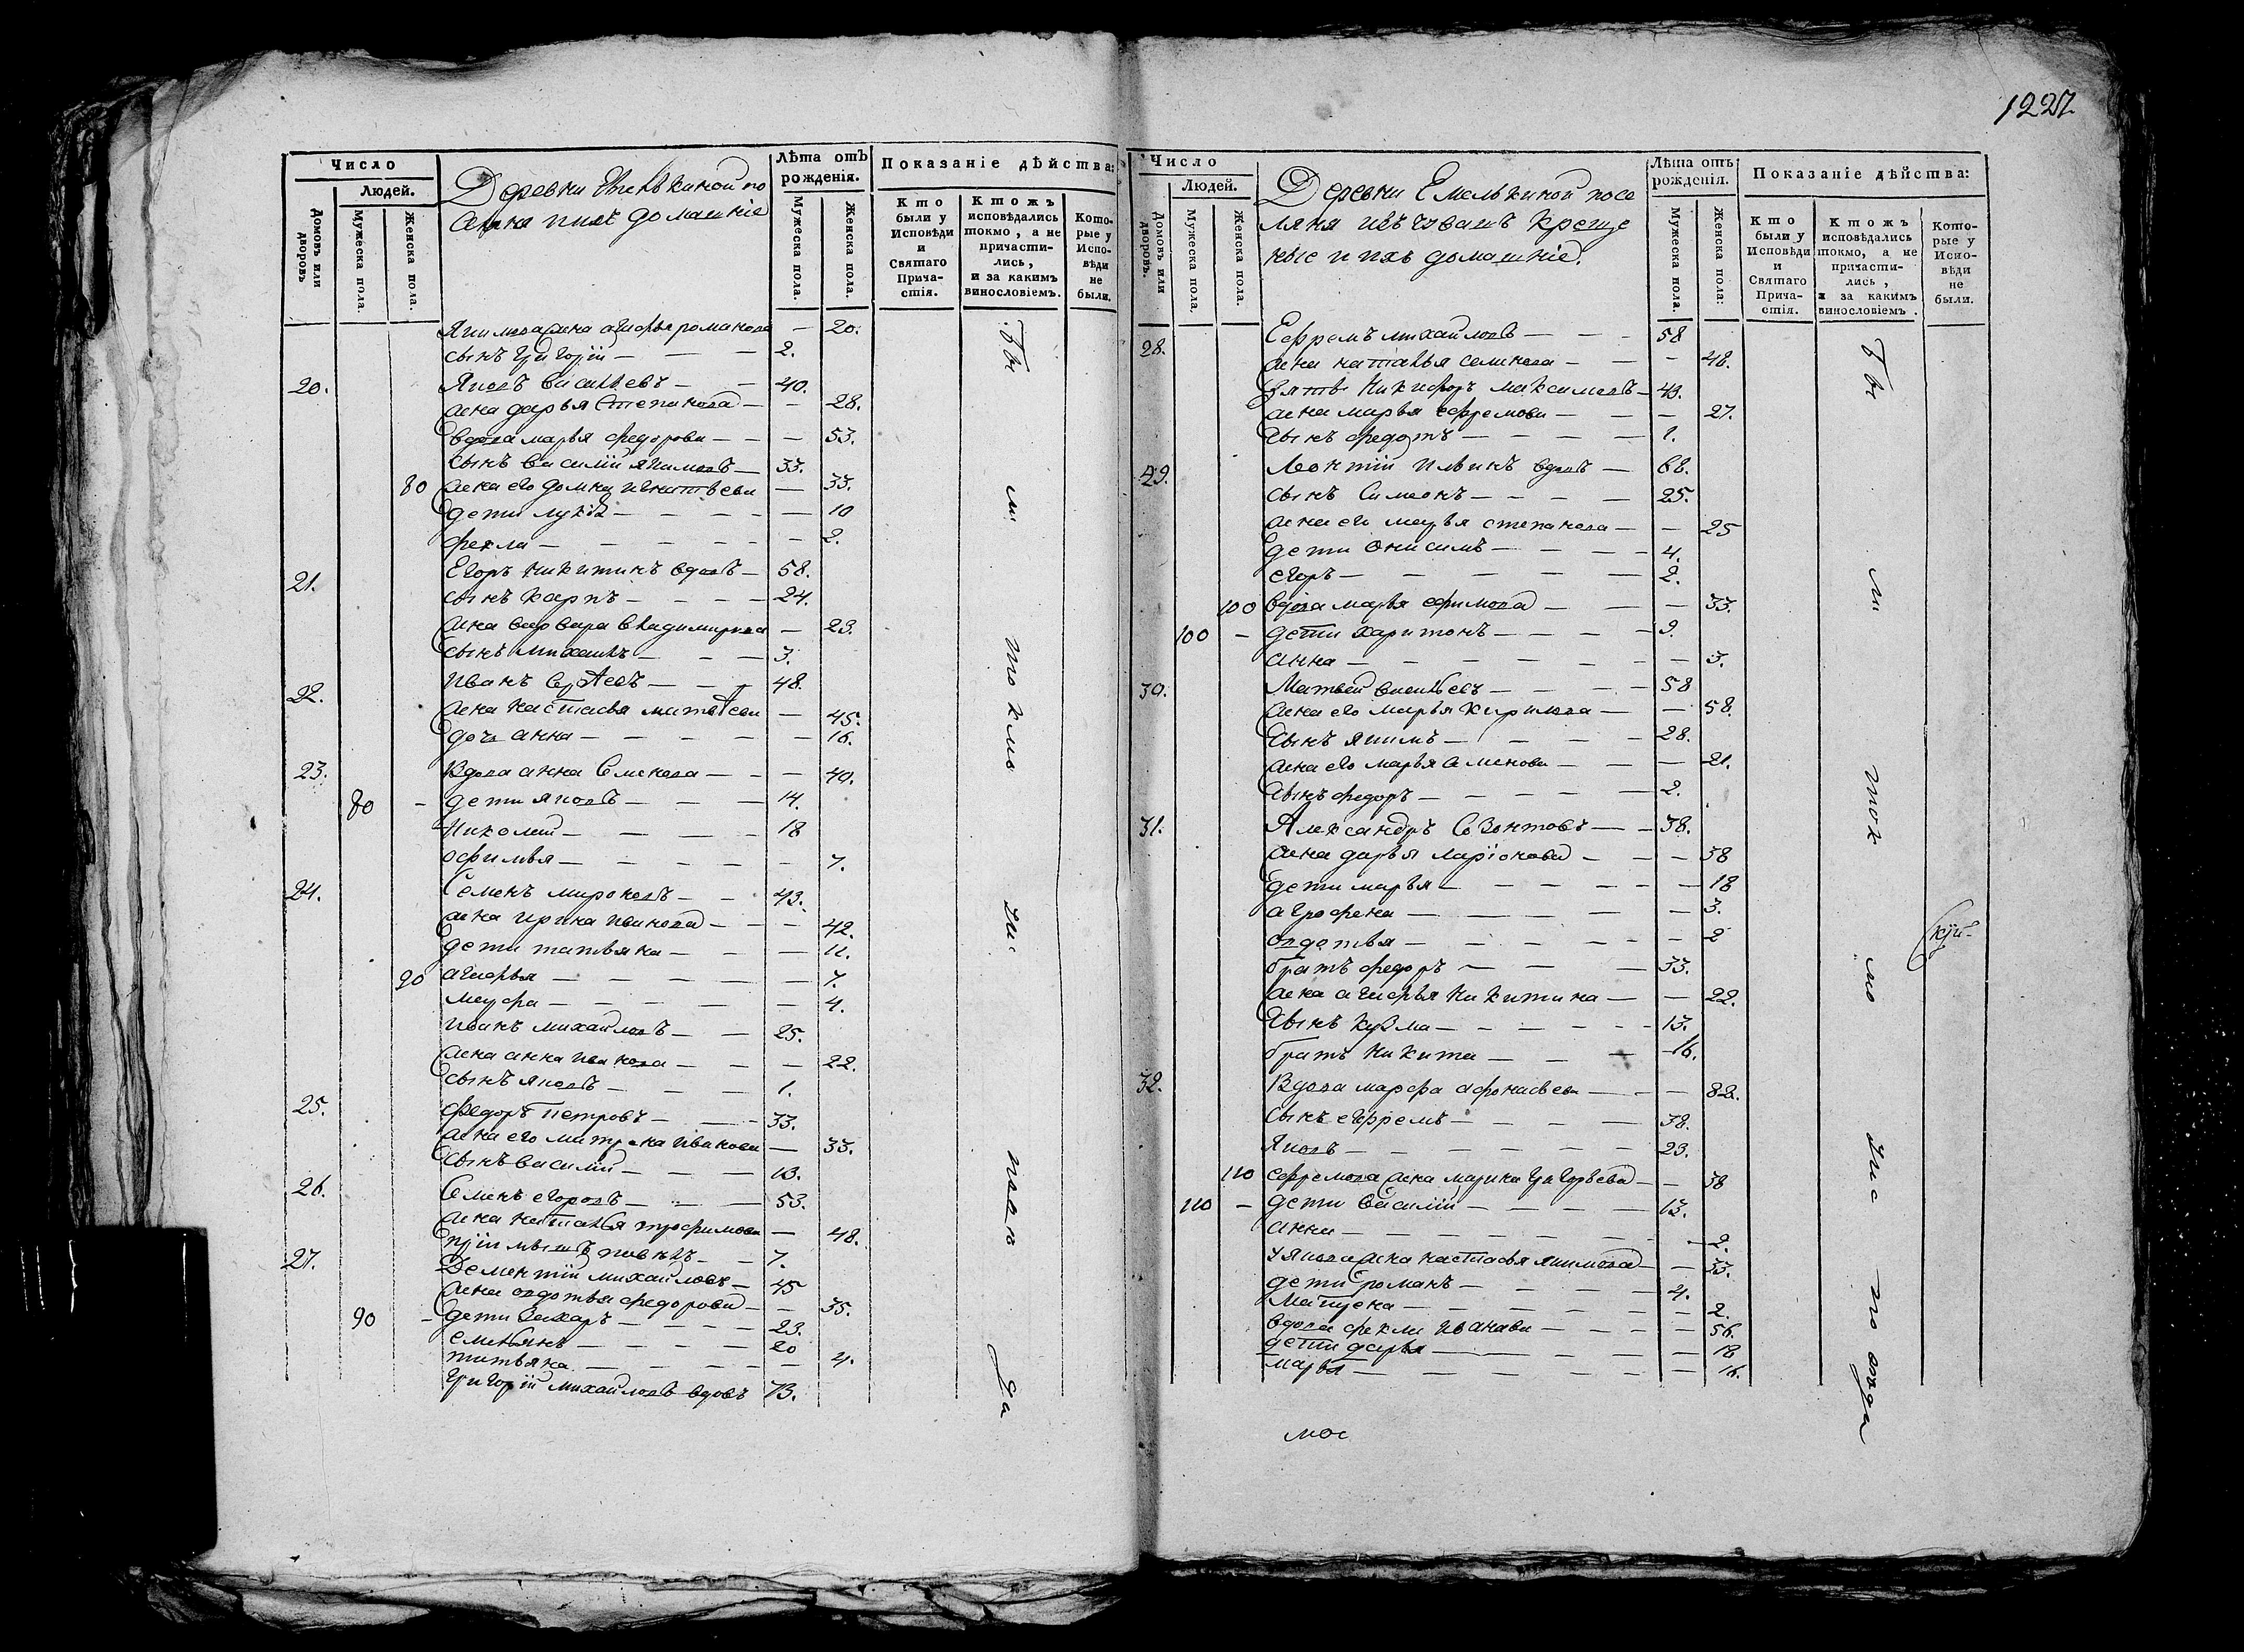 1227
Число
Людей.
Домовъ или дворовъ
Мужеска пола.
Женска пола.
Деревни
домашніе
Лѣта отъ рожденія.
Мужеска пола.
Женска пола.
Показаніе дѣйства:
Кто были у Исповѣди и Святаго Прича-стія.
Ктожъ исповѣдались токмо, а не причасти-лись, и за какимъ винословіемъ.
Кото-рые у Испо-вѣди не были.
жена агафья романова — 20.
сынъ григорій — — — 2.
20. Яковъ васильевъ — — 40.
жена дарья степанова — — 28.
вдова марья федорова — — — 53.
сынъ василій якимовъ — 33.
80 жена его домна игнатьева — 33.
дети — — — — — 10
фекла — — — — — — 2.
21. Егоръ никитинъ вдовъ — 58.
сынъ карпъ — — — — 24.
жена варвара владимирова — 23.
сынъ михаилъ — — — 3.
22. Иванъ — — — 48.
жена настасья матвеева — 45.
дочь анна — — — — — 16.
23. Вдова анна семенова — — — 40.
80 - дети яковъ — — — 14.
Николай — — — — 18
офимья — — — — — — 7.
24. Семенъ мироновъ — — 43.
жена ирина иванова — — — 42.
дети татьяна — — — 11.
90 агафья — — — — — 7.
марфа — — — — — — 4.
иванъ михайловъ — — 25.
жена анна иванова — — — 22.
сынъ яковъ — — — 1.
25. Федоръ петровъ — — — 33.
жена его матрена иванова — 33.
сынъ василій — — — 13.
26. Семенъ егоровъ — — — 53.
жена наталья трофимова — 48.
— — 7.
27. Дементій михайловъ — 45
жена овдотья федорова — — 35.
90 - дети захаръ — — — — 23.
емельянъ — — — — 20
татьяна — — — — — 4.
григорій михайловъ вдовъ 73.
бы
ли
токмо
на
да
Число
Людей.
Домовъ или дворовъ.
Мужеска пола.
Женска пола.
Деревни Емелькиной посе
ляня изъ чувашъ креще
ные и ихъ домашніе.
Лѣта отъ рожденія.
Мужеска пола.
Женска пола:
Показаніе дѣйства:
Кто были у Исповѣди и Святаго Прича-стія.
Ктожъ исповѣдались токмо, а не причасти-лись, и за какимъ винословіемъ.
Кото-рые у Испо-вѣди не были.
28. Ефремъ михайловъ — — — 58
жена наталья семенова — — — 48.
зять никифоръ максимовъ — 43.
жена марья ефремова — — — 27.
сынъ федотъ — — — — 1.
29. Леонтій ильинъ вдовъ — 68.
сынъ Симеонъ — — — — 25.
жена его марья степанова — — 25
дети онисимъ — — — — 4.
егоръ — — — — — 2.
100 вдова марья ефимова — — — 33.
100 - дети харитонъ — — — — 9.
анна — — — — — — — 3.
30. Матвей васильевъ — — — — 58
жена его марья кирилова — — 58.
сынъ якимъ — — — — 28.
жена его марья семенова — — — 21.
сынъ федоръ — — — — — 2.
31. Александръ — — 38.
жена дарья ларіонова — — — 38
дети марья — — — — — — 18
агрофена — — — — — 3.
овдотья — — — — — — 2
братъ федоръ — — — 33.
жена агафья никитина — — 22.
сынъ кузма — — — — — — 13.
братъ никита — — — 16.
32. Вдова марфа афонасьева — — — 82.
сынъ ефремъ — — — — 38.
Яковъ — — — — — — 23.
110 ефремова жена марина григорьева — — 38
110 - дети василій — — — — 13.
анна — — — — — — — 2.
у якова жена настасья якимова — — 33.
дети романъ — — — — 4.
матрена — — — — — — 2.
вдова фекла иванова — — — — 56.
дети дарья — — — — — — 18
марья — — — — — — — 16.
бы
ли
ток
мо